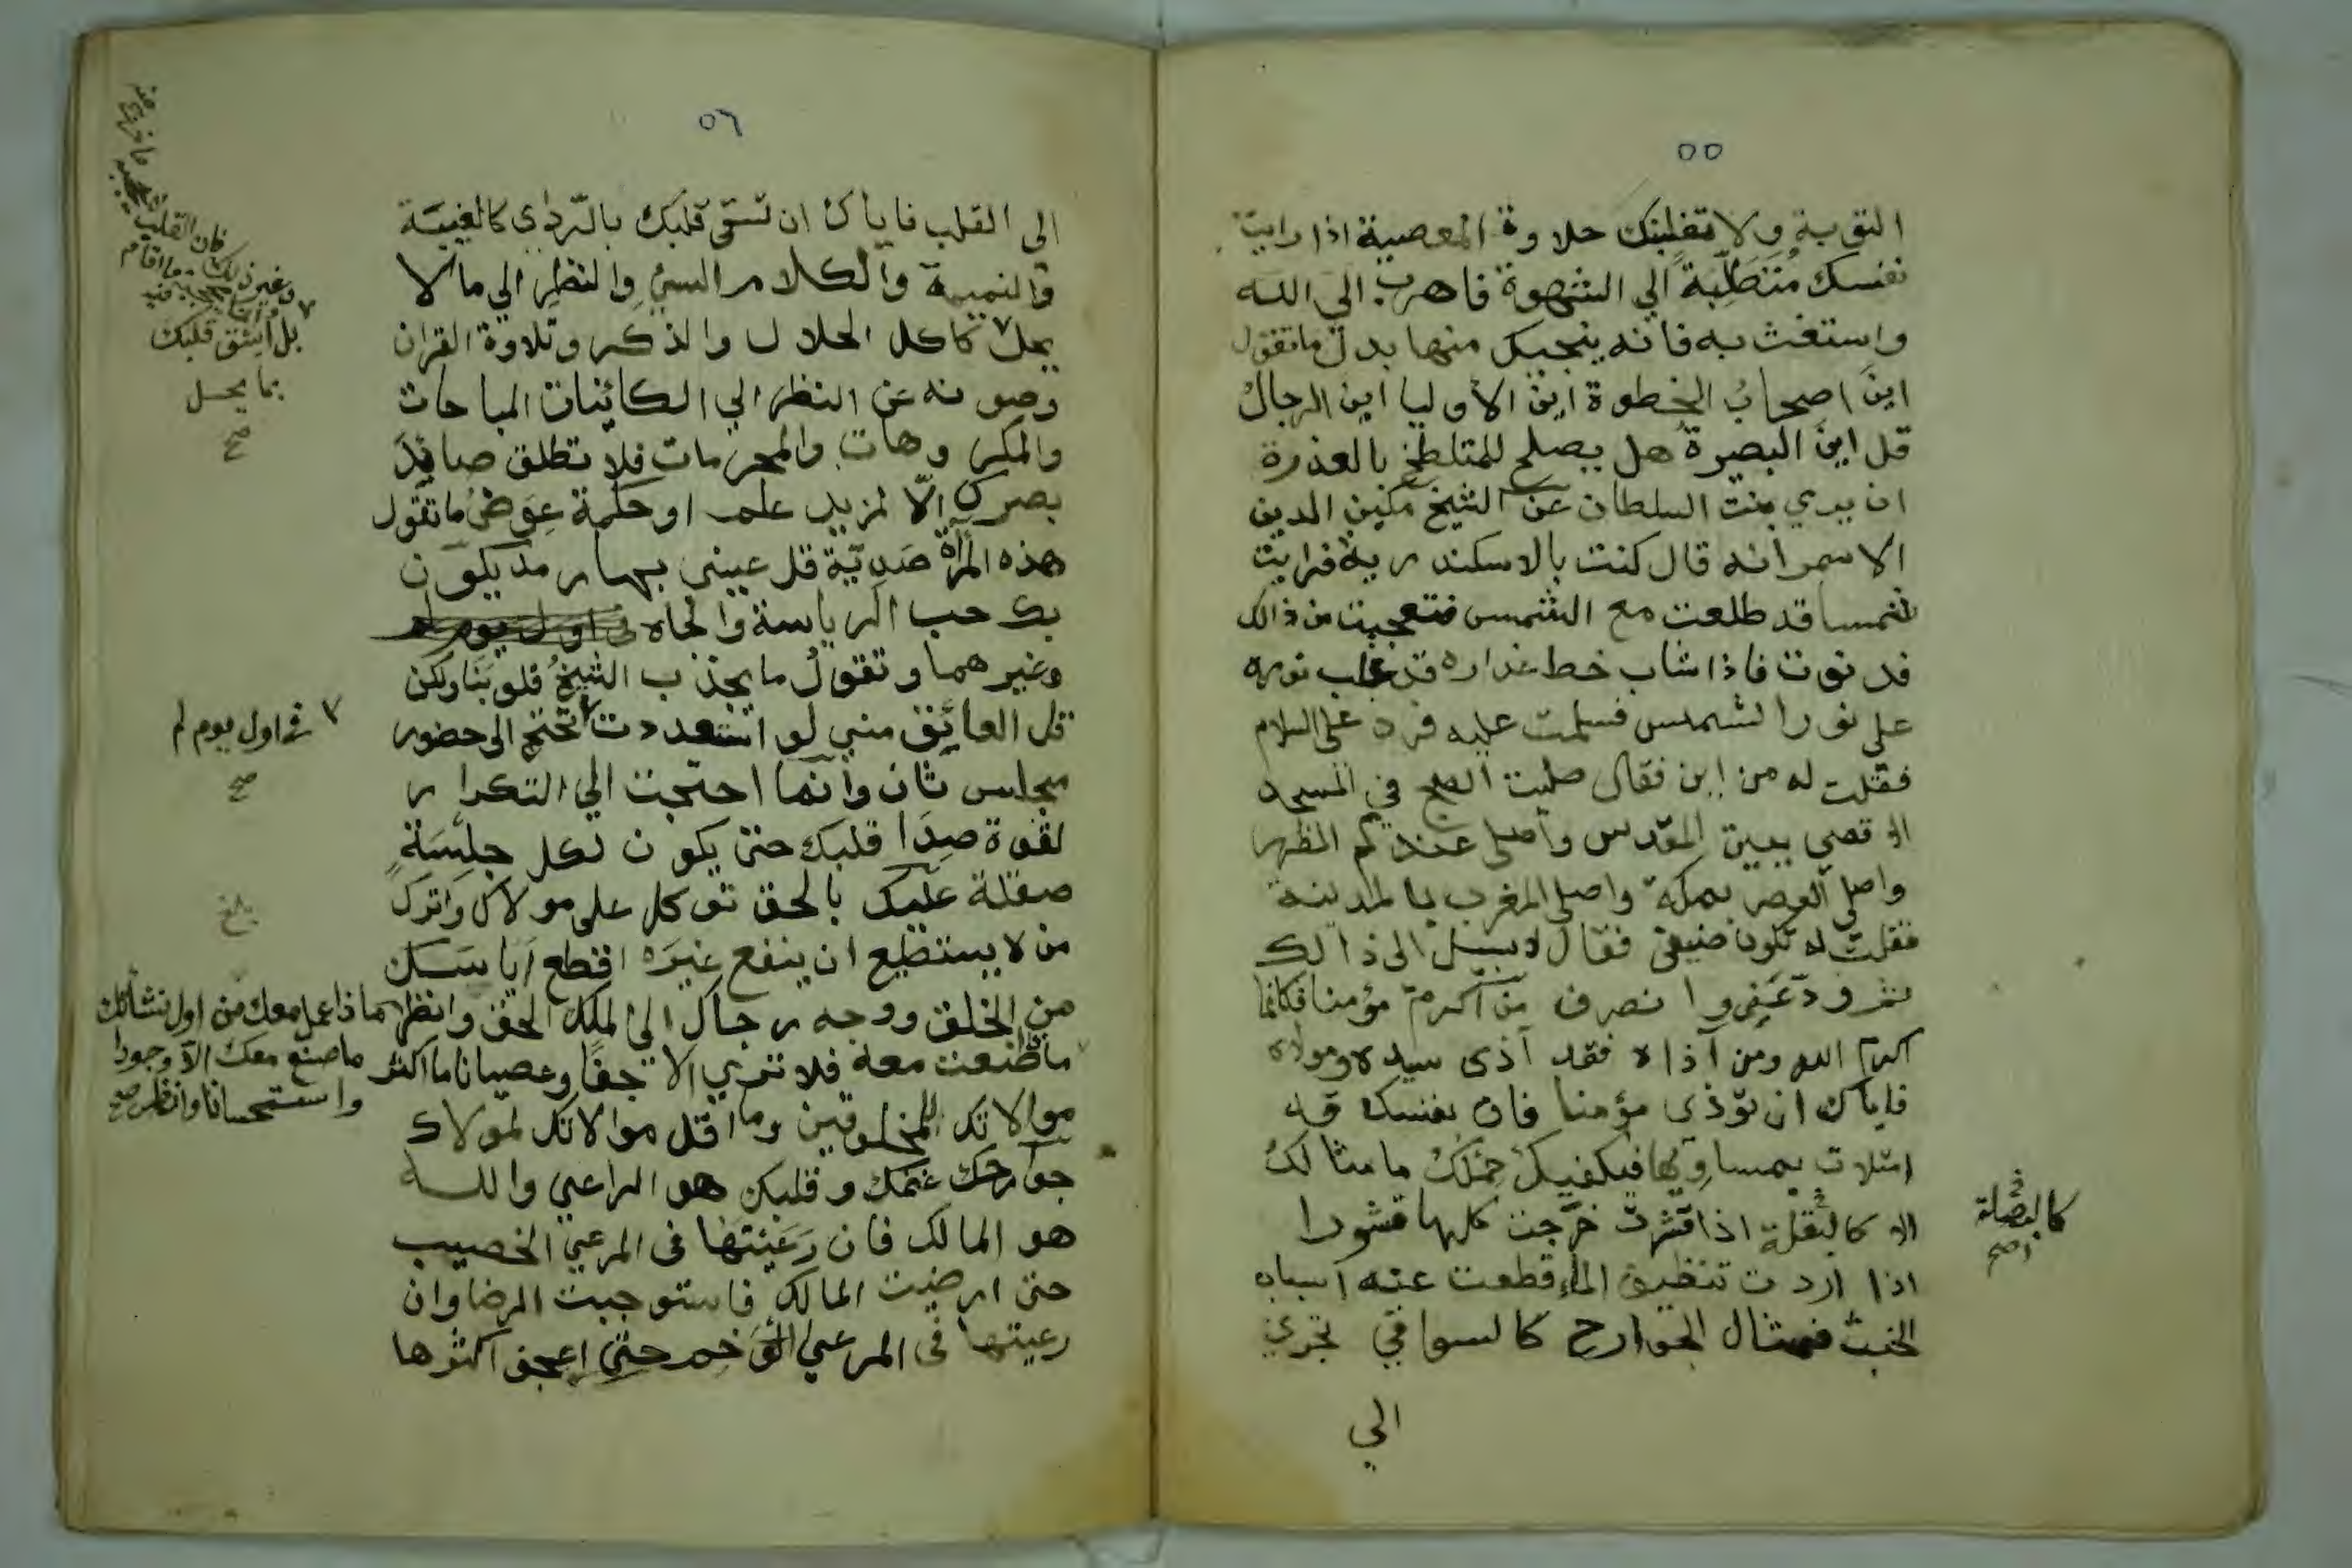 ٥٥
التوبة ولا تغلبنك حلاوة المعصية اذا رايت
نفسك متطلبة الي الشهوة فاهرب الى الله
واستغث به فانه ينجيك منها بدل ما تقول
اين اصحاب الخطوة اين الاوليا اين الرجال
قل اين البصيرة هل يصلح للمتلطخ بالعذرة
ان يري بنت السلطان عن الشيخ مكين الدين
الاسمر انه قال كنت بالاسكندرية فرايت
شمسا قد طلعت مع الشمس فتعجبت من ذالك
فدنوت فاذا شاب خط عذاره قد غلب نوره
على نور الشمس فسلمت عليه فرد علي السلام
فقلت له من اين فقال صليت الصبح في المسجد
الاقصي ببيت المقدس واصلي عندكم الظهر
واصلي العصر بمكة واصلي المغرب بالمدينة
فقلت له تكون ضيفي فقال لا سبيل الى ذالك
ثم ودعني وانصرف من اكرم مؤمنا فكانما
اكرم الله ومن آذاه فقد آذى سيده ومولاه
فاياك ان توذي مؤمنا فان نفسك قد
امتلات بمساويها فيكفيك حملك ما مثالك
الا كالبقلة اذا قشرت خرجت كلها قشورا
كالبصلة
صح
اذا اردت تنظيف الماء قطعت عنه اسباب
الخبث فمثال الجوارح كالسواقي تجري
الي
٥٦
الى القلب فاياك ان تسقي قلبك بالردي كالغيبة
والنميمة والكلام السيئ والنظر الي ما لا
يحل كاكل الحلال والذكر وتلاوة القران
وصونه عن النظر الي الكائنات المباحات
والمكروهات والمحرمات فلا تطلق صائد
بصرك الا لمزيد علم او حكمة عوض ما تقول
هذه المرآة صدية قل عيني بها رمد يكون
بك حب الرياسة والجاه
وغيرهما وتقول ما يجذب الشيخ قلوبنا ولكن
قل العائق مني لو استعددت لم تحتج الى حضور
مجلس ثان وانما احتجت الي التكرار
لقوة صدا قلبك حتى يكون لكل جلسة
صقلة عليك بالحق توكل على مولاك واترك
من لا يستطيع ان ينفع غيره اقطع اياسك
من الخلق ووجه رجاك الى الملك الحق وانظر ماذا عمل معك من اول نشأتك
ما صنعت معه فلا تري الا جفا وعصيانا ما اكثر
موالاتك للمخلوقين وما اقل موالاتك لمولاك
جوارحك غنمك وقلبك هو الراعي والله
هو المالك فان رعيتها فى المرعي الخصيب
حتى ارضيت المالك فاستوجبت الرضا وان
رعيتها فى المرعي الوخم حتى اعجف اكثرها
فان القلب
وغير ذلك
بل اسق قلبك
بما يحل
صح
في اول يوم لم
صح
بلغ
ما صنع معك الا وجودا
واستحسانا وانظر صح